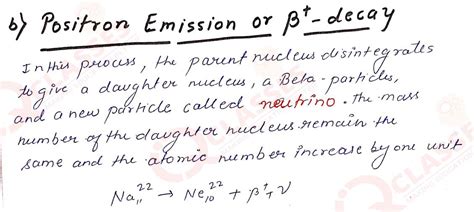 b) Positron Emission or β⁺-decay
In this process, the parent nucleus disintegrates
to give a daughter nucleus, a Beta-particles,
and a new particle called neutrino. The mass
number of the daughter nucleus remain the
same and the atomic number increase by one unit
Na₁₁²² → Ne₁₀²² + β⁺+ν